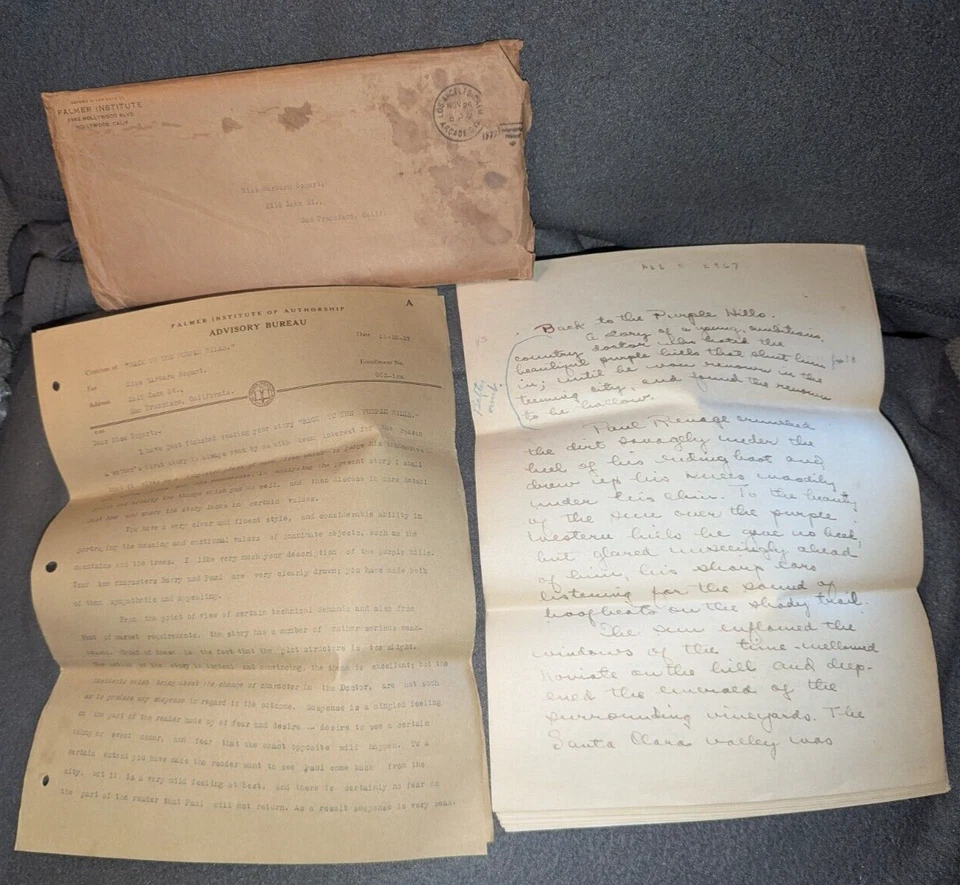 PALMER INSTITUTE
HOLLYWOOD BLVD
HOLLYWOOD, CALIF
LOS ANGELES
NOV 26
ARCADE
Miss Barbara Bogart,
Lake St.,
San Francisco, Calif.
A
PALMER INSTITUTE OF AUTHORSHIP
ADVISORY BUREAU
Date
Criticism of "BACK TO THE PURPLE HILLS."
For Miss Barbara Bogart,
Enrollment No.
Address Lake St.,
San Francisco, California.
Dear Miss Bogart:-
I have just finished reading your story "BACK TO THE PURPLE HILLS."
A writer's first story is always read by us with keen interest for the reason
the present story I shall
the things which you do well, and then discuss in more detail
just how and where the story lacks in certain values.
You have a very clear and fluent style, and considerable ability in
portraying the meaning and emotional values of inanimate objects, such as the
mountains and the trees. I like very much your description of the purple hills.
Your two characters Barry and Paul are very clearly drawn; you have made both
of them sympathetic and appealing.
From the point of view of certain technical demands and also from
that of market requirements, the story has a number of rather serious weak-
nesses. Chief of these is the fact that the plot structure is too slight.
The action of the story is logical and convincing, the theme is excellent; but the
incidents which bring about the change of character in the Doctor, are not such
as to produce any suspense in regard to the outcome. Suspense is a mingled feeling
on the part of the reader made up of fear and desire -- desire to see a certain
thing or event occur, and fear that the exact opposite will happen. To a
certain extent you have made the reader want to see Paul come back from the
city, but it is a very mild feeling at best, and there is certainly no fear on
the part of the reader that Paul will not return. As a result suspense is very weak.
2967
Back to the Purple Hills.
A story of a young, ambitious,
country doctor who hated the
beautiful purple hills that shut him
in; until he won renown in the
teeming city, and found the renown
to be hollow.
Paul Renage crunched
the dirt savagely under the
heel of his riding boot and
drew up his knees moodily
under his chin. To the beauty
of the sun over the purple
Western hills he gave no heed,
but glared unseeingly ahead
of him, his sharp ears
listening for the sound of
hoofbeats on the shady trail.
The sun enflamed the
windows of the time-mellowed
novitiate on the hill and deep-
ened the emerald of the
surrounding vineyards. The
Santa Clara valley was